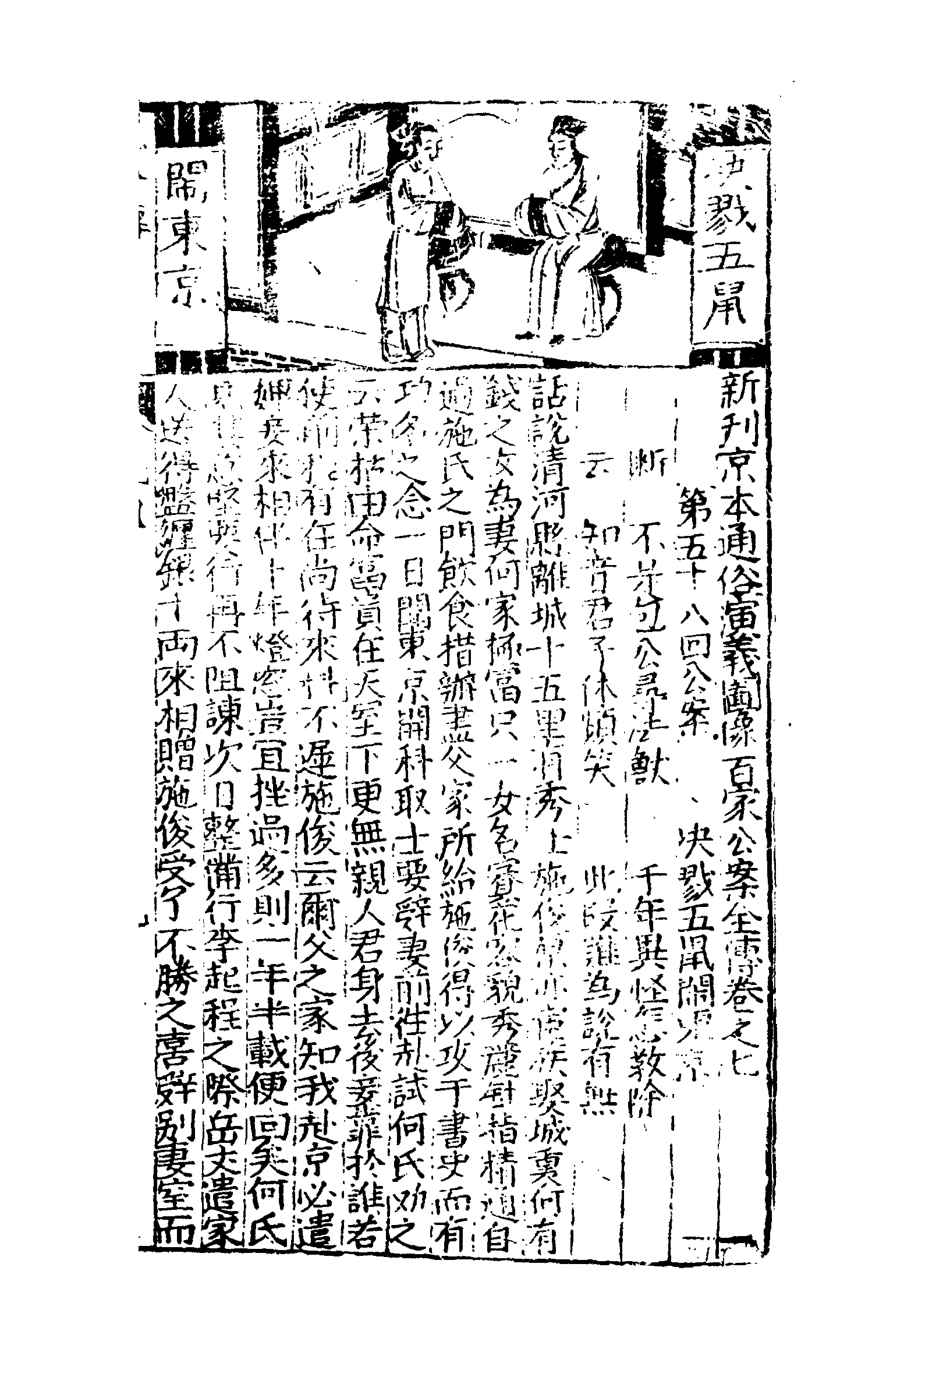 決戮五鼠
鬧東京
新刊京本通俗演義圖像百家公案全傳卷之七
第五十八回公案 決戮五鼠鬧東京
斷 不是包公尋法獸 千年異怪怎教除
云 知音君子休煩笑 此段誰為說有無
話說清河縣離城十五里有秀士施俊 娶城裏何有
錢之女為妻何家極富只一女名賽花容貌秀麗針指精通自
過施氏之門飲食措辦盡父家所給施俊得以攻于書史而有
功名之念一日聞東京開科取士要辞妻前徃赴試何氏劝之
云荣枯由命富貴在天室下更無親人君身去後妾靠於誰若
使前程有在尚待來科不遲施俊云爾父之家知我赴京必遣
婢妾來相伴十年燈窓豈宜挫過多則一年半載便回矣何氏
見其意堅要行再不阻諫次日整備行李起程之際岳丈遣家
人送得盤纏銀十両來相贈施俊受了不勝之喜辞别妻室而